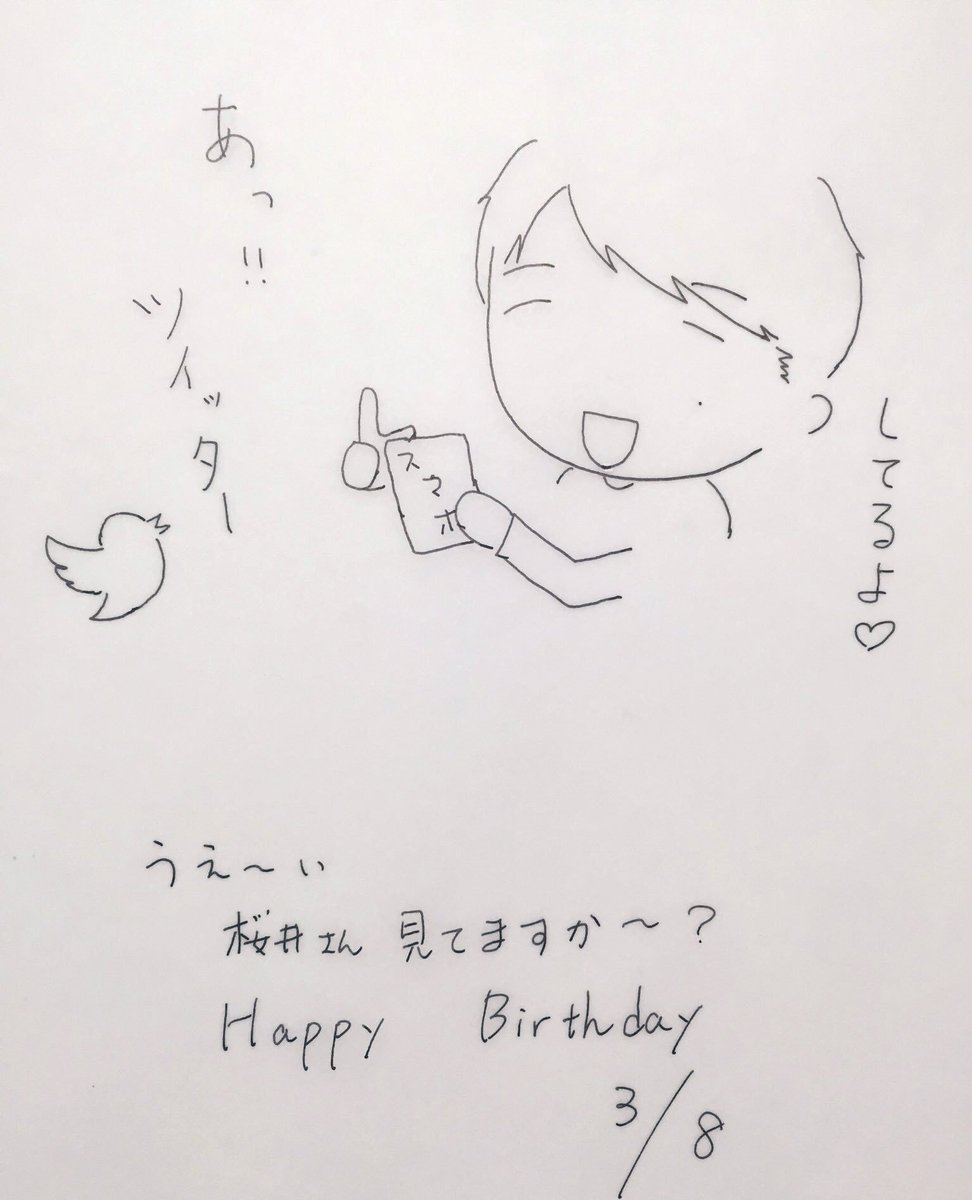 あっ!!
ツイッター
してるよ♡
スマホ
うえ〜い
桜井さん 見てますか〜?
Happy Birthday
3/8